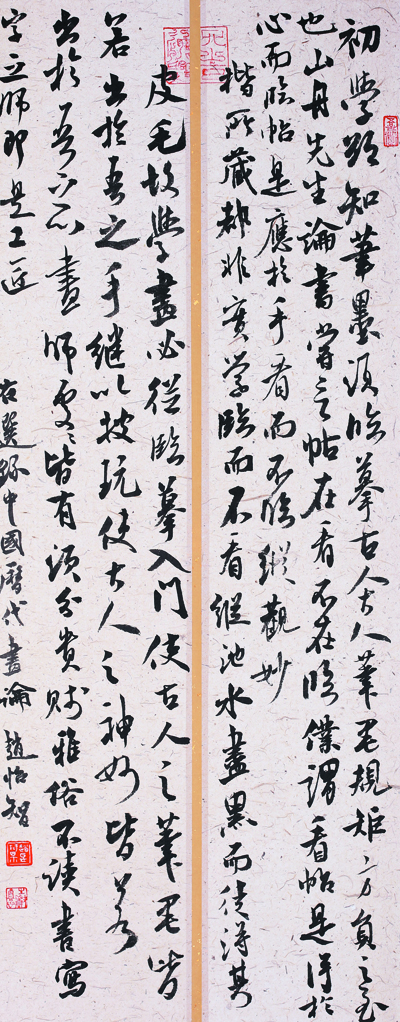 初學欲知筆墨須臨摹古人古人筆墨規矩方員之至
也山舟先生論書嘗言帖在看不在臨僕謂看帖是得於
心而臨帖是應於手看而不臨縱觀妙
楷所藏都非實學臨而不看縱池水盡黑而徒得其
皮毛故學畫必從臨摹入門使古人之筆墨皆
若出於吾之手繼以披玩使古人之神妙皆若
出於吾心畫師處處皆有須分貴賤雅俗不讀書寫
字之師即是工匠
右選錄中國歷代畫論 趙怡智